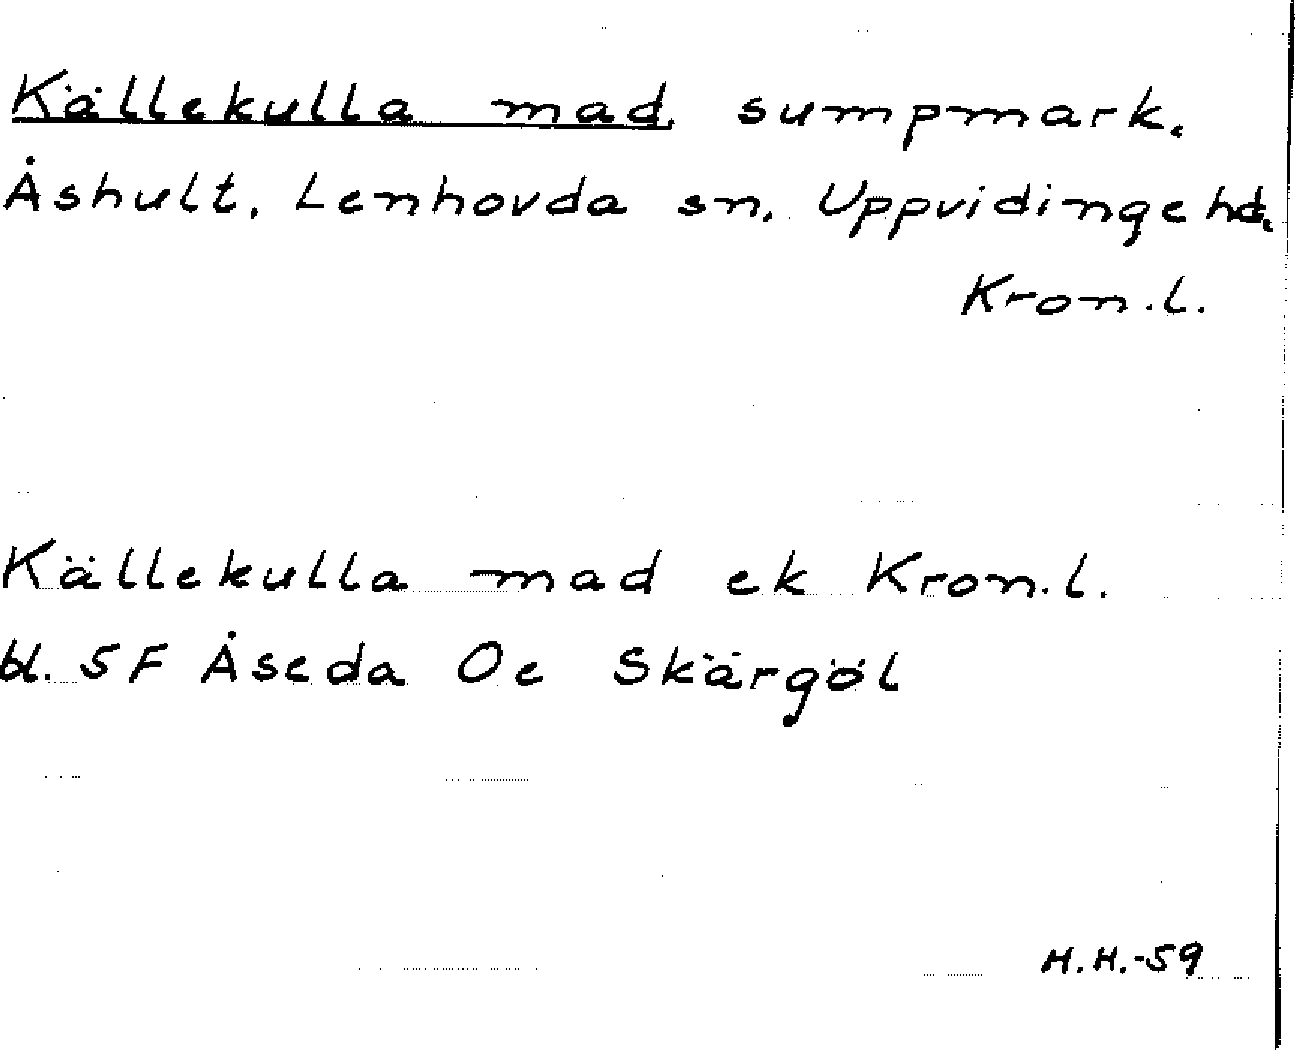 Källekulla mad, sumpmark.
Åshult. Lenhovda sn. Uppvidinge hd.
Kron.l.
Källekulla mad ek Kron.l.
bl. 5F Åseda Oe Skärgöl
H.H.-59